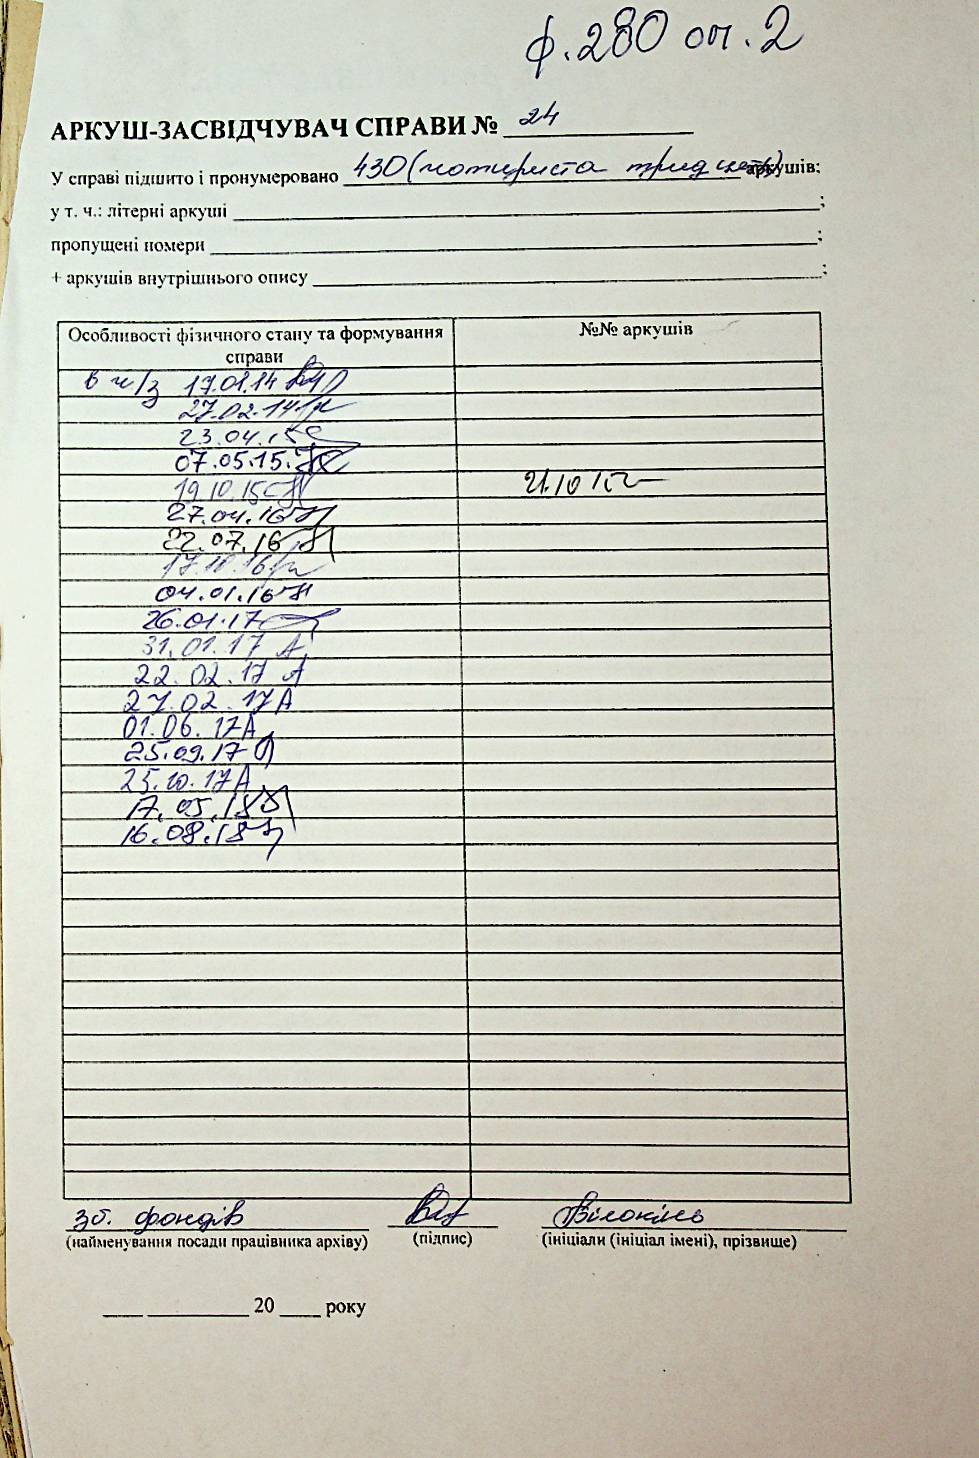 ф.280 оп.2
АРКУШ-ЗАСВІДЧУВАЧ СПРАВИ № 24
У справі підшито і пронумеровано 430 (чотириста тридцять) аркушів;
у т. ч.: літерні аркуші ;
пропущені номери ;
+ аркушів внутрішнього опису ;
Особливості фізичного стану та формування справи
№№ аркушів
в ч/з 17.01.14
27.02.14
23.04.15
07.05.15.
19.10.15 21.10.15
27.04.16
22.07.16
17.10.16
04.01.16
26.01.17
31.01.17 А
22.02.17 А
27.02.17 А
01.06.17 А
25.09.17
25.10.17 А
17.05.18
16.08.18
зб. фондів Білокінь
(найменування посади працівника архіву) (підпис) (ініціали (ініціал імені), прізвище)
____ __________ 20 ____ року